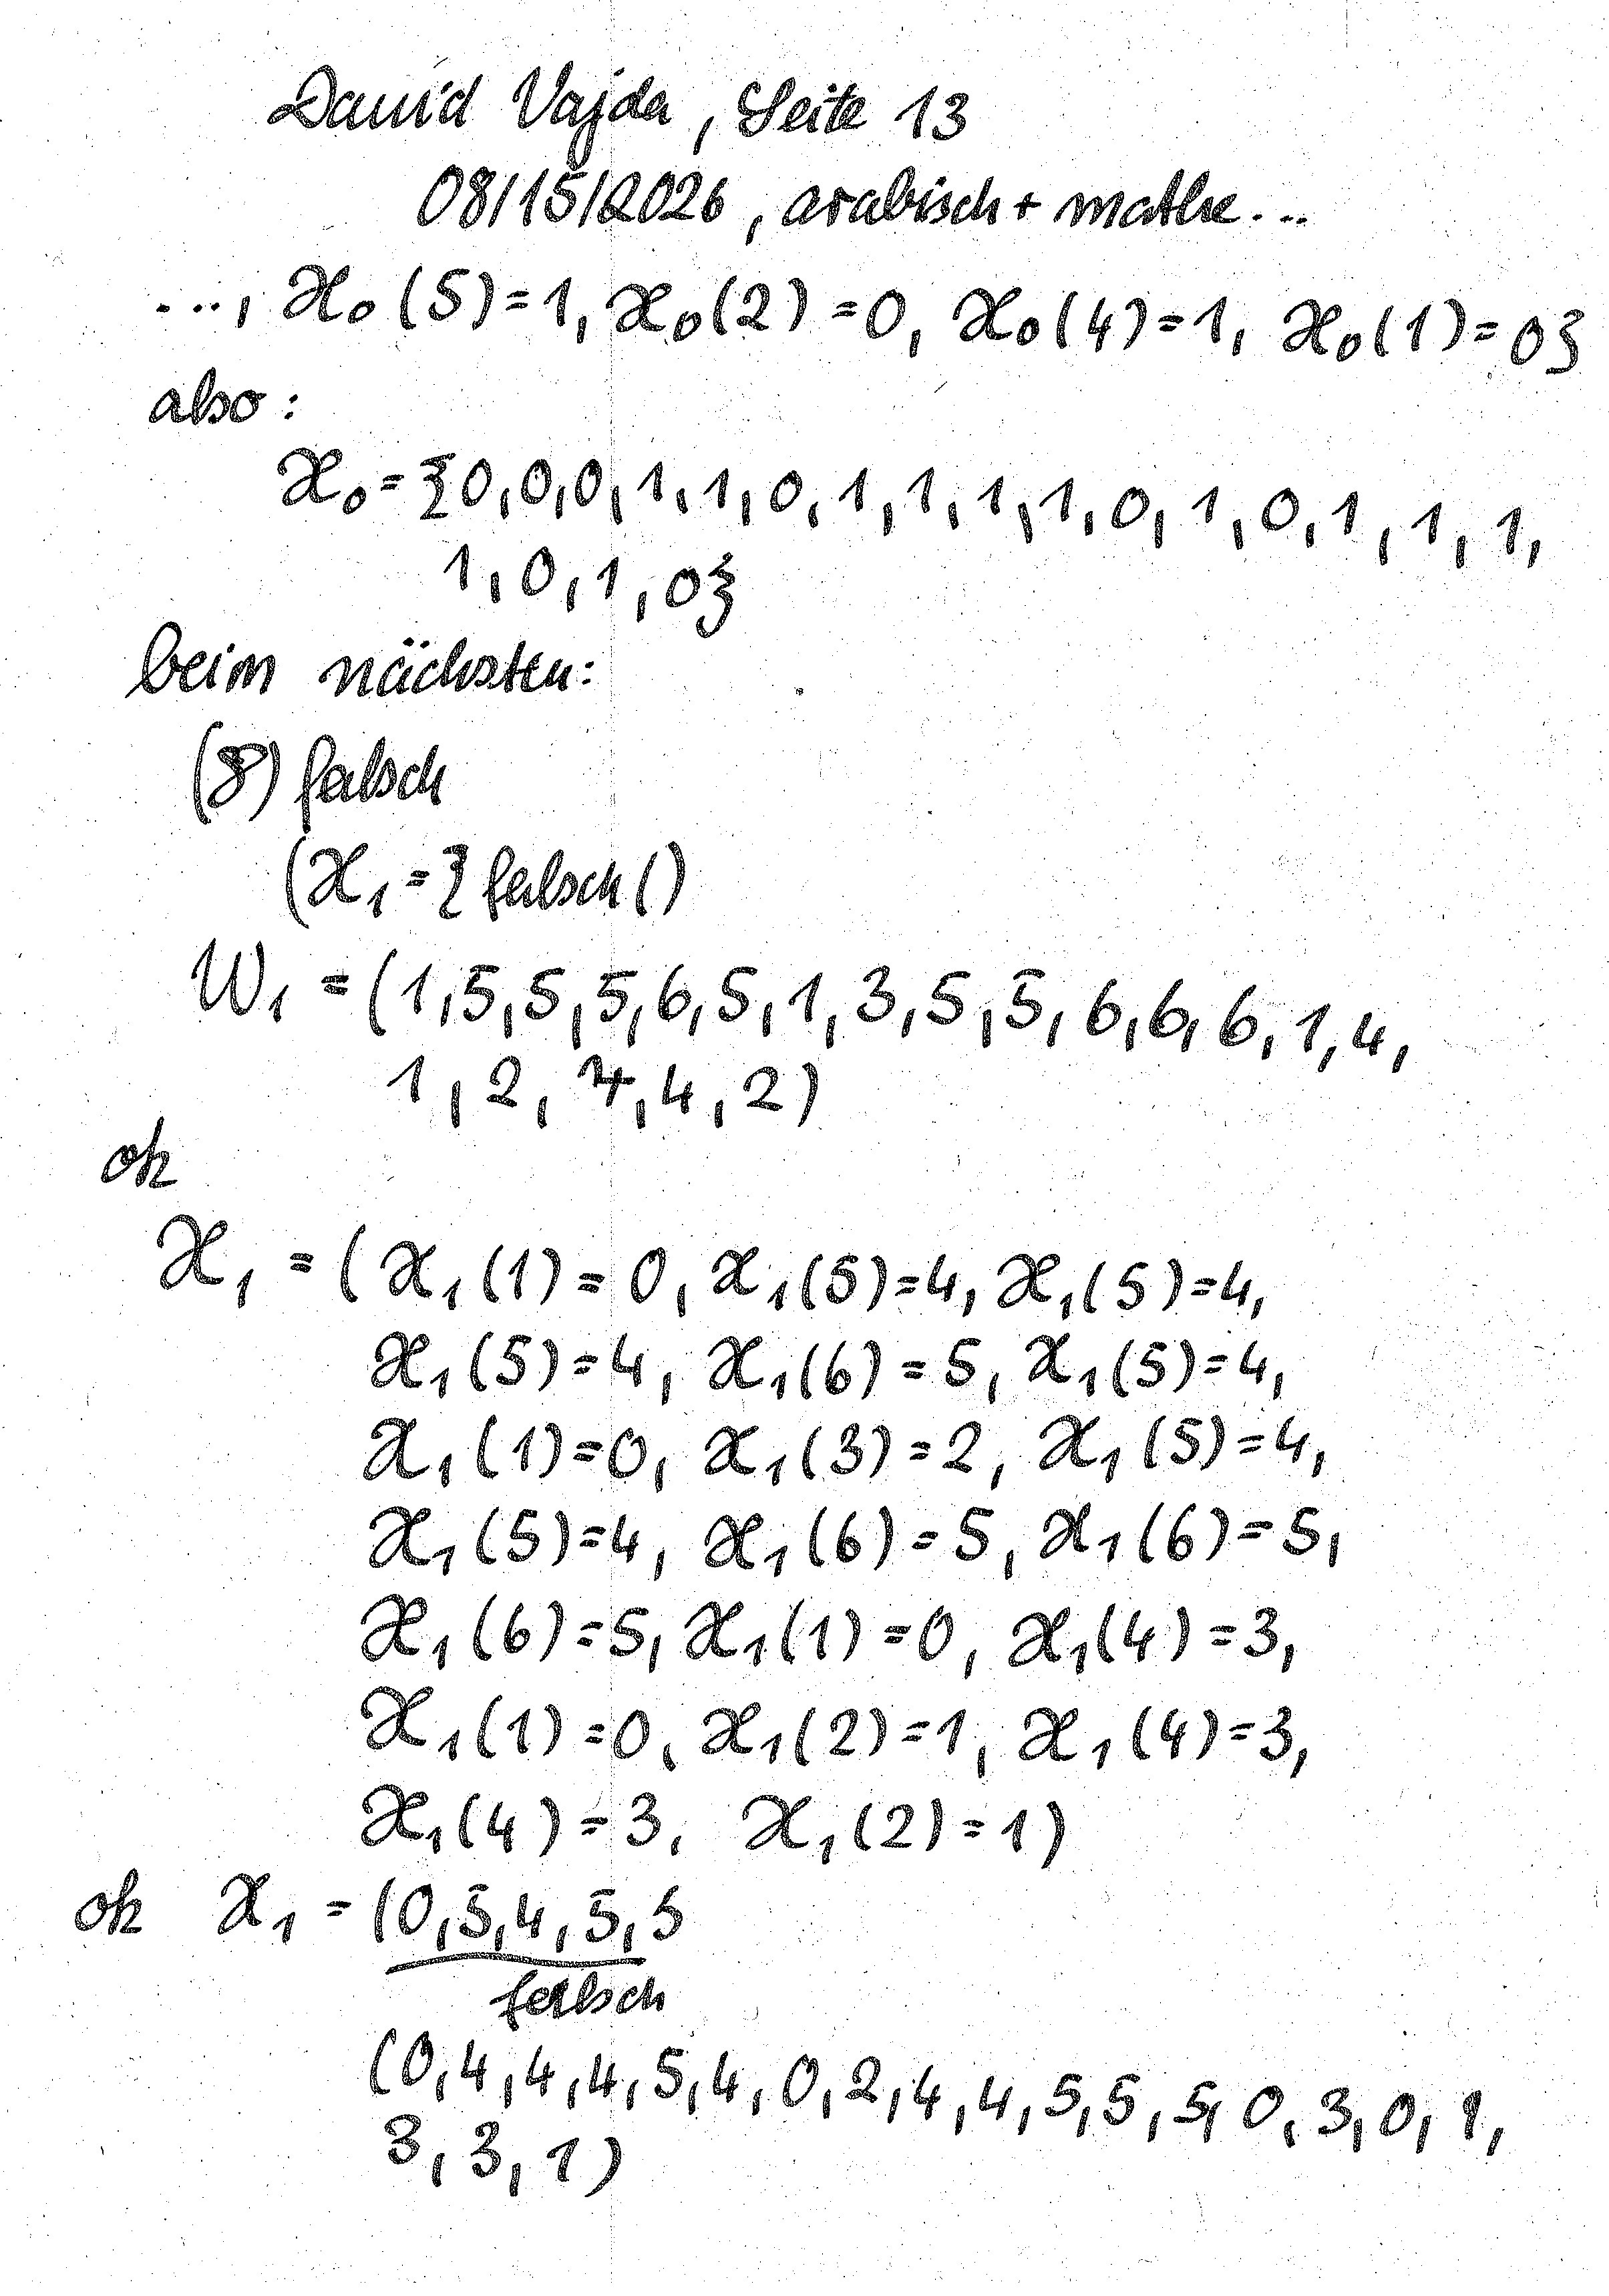 David Vajda, Seite 13
08/15/2026, arabisch + mathe...
..., X₀(5)=1, X₀(2)=0, X₀(4)=1, X₀(1)=0}
also:
X₀={0,0,0,1,1,0,1,1,1,1,0,1,0,1,1,1,
1,0,1,0}
beim nächsten:
(8) falsch
(X₁={ falsch ()
W₁=(1,5,5,5,6,5,1,3,5,5,6,6,6,1,4,
1,2,4,4,2)
ok
X₁=(X₁(1)=0, X₁(5)=4, X₁(5)=4,
X₁(5)=4, X₁(6)=5, X₁(5)=4,
X₁(1)=0, X₁(3)=2, X₁(5)=4,
X₁(5)=4, X₁(6)=5, X₁(6)=5,
X₁(6)=5, X₁(1)=0, X₁(4)=3,
X₁(1)=0, X₁(2)=1, X₁(4)=3,
X₁(4)=3, X₁(2)=1)
ok X₁=(0,5,4,5,5
falsch
(0,4,4,4,5,4,0,2,4,4,5,5,5,0,3,0,1,
3,3,1)